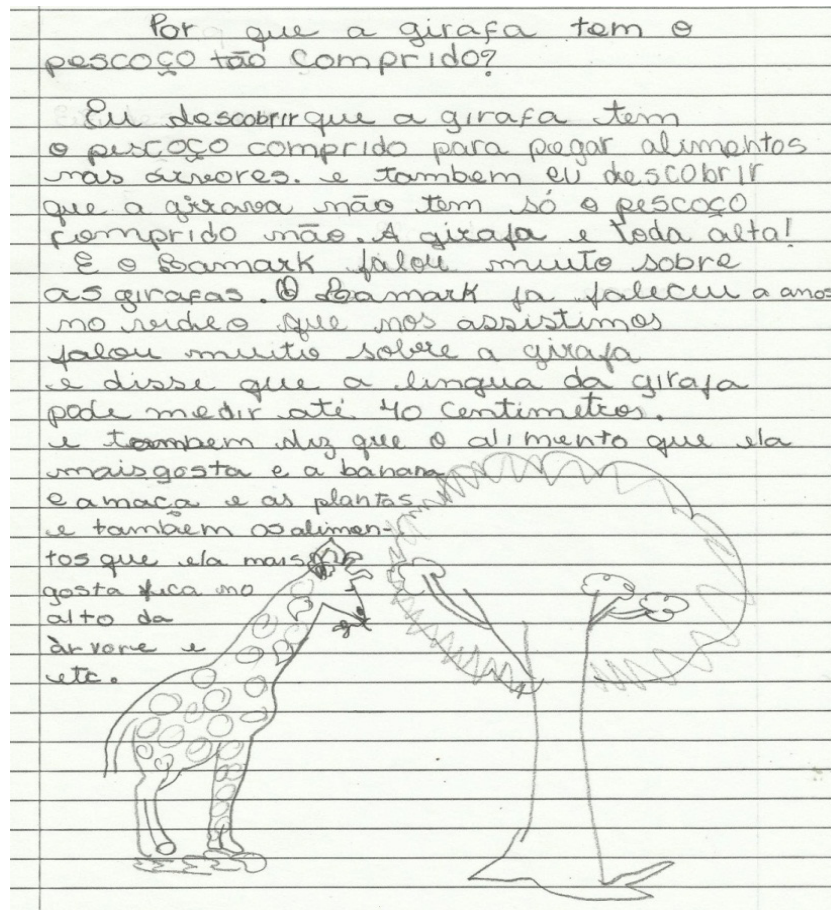 Por que a girafa tem o
pescoço tão comprido?
Eu descobrir que a girafa tem
o pescoço comprido para pegar alimentos
nas árvores. e tambem eu descobrir
que a girava não tem só o pescoço
comprido não. A girafa e toda alta!
E o Lamark falou muito sobre
as girafas. O Lamark ja faleceu a anos
no video que nos assistimos
falou muito sobre a girafa
e disse que a lingua da girafa
pode medir até 40 centimetros.
e tambem diz que o alimento que ela
mais gosta e a banana
e a maça e as plantas
e também os alimen-
tos que ela mais
gosta fica no
alto da
àrvore e
etc.